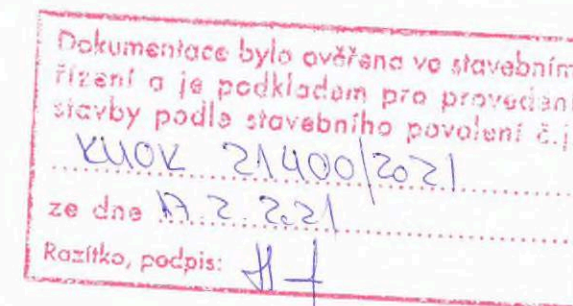 Dokumentace byla ověřena ve stavebním
řízení a je podkladem pro provedení
stavby podle stavebního povolení č.j.
KUOK 21400/2021
ze dne 17.2.2021
Razítko, podpis: